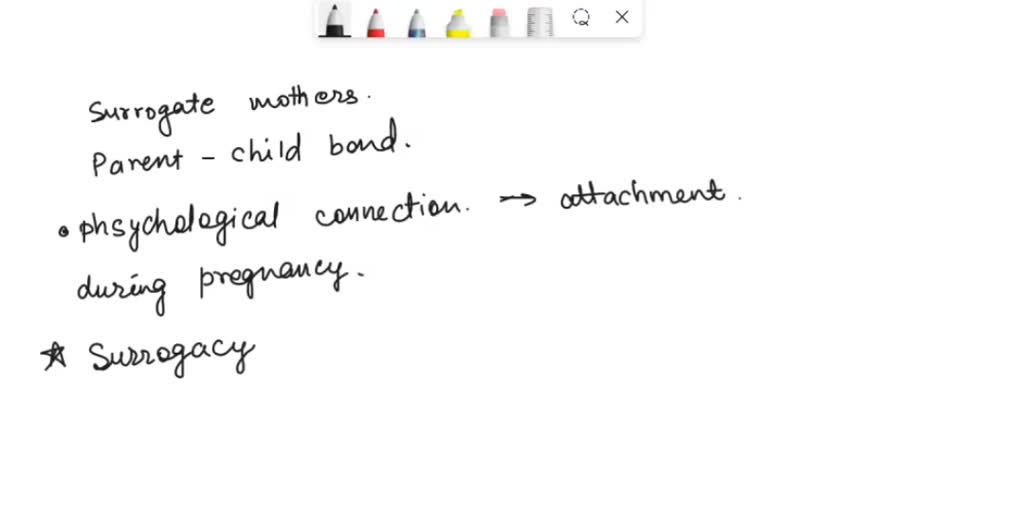 Surrogate mothers.
Parent - child bond.
• phsychological connection. → attachment.
during pregnancy.
☆ Surrogacy